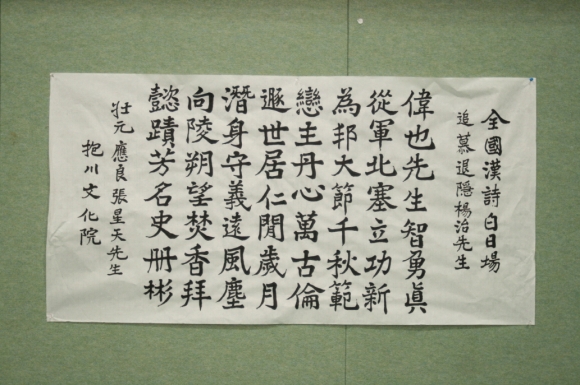 全國漢詩白日場
追慕退隱楊治先生
偉也先生智勇眞
從軍北塞立功新
為邦大節千秋範
戀主丹心萬古倫
遯世居仁閒歲月
潛身守義遠風塵
向陵朔望焚香拜
懿蹟芳名史册彬
壯元 應良 張星天先生
抱川文化院